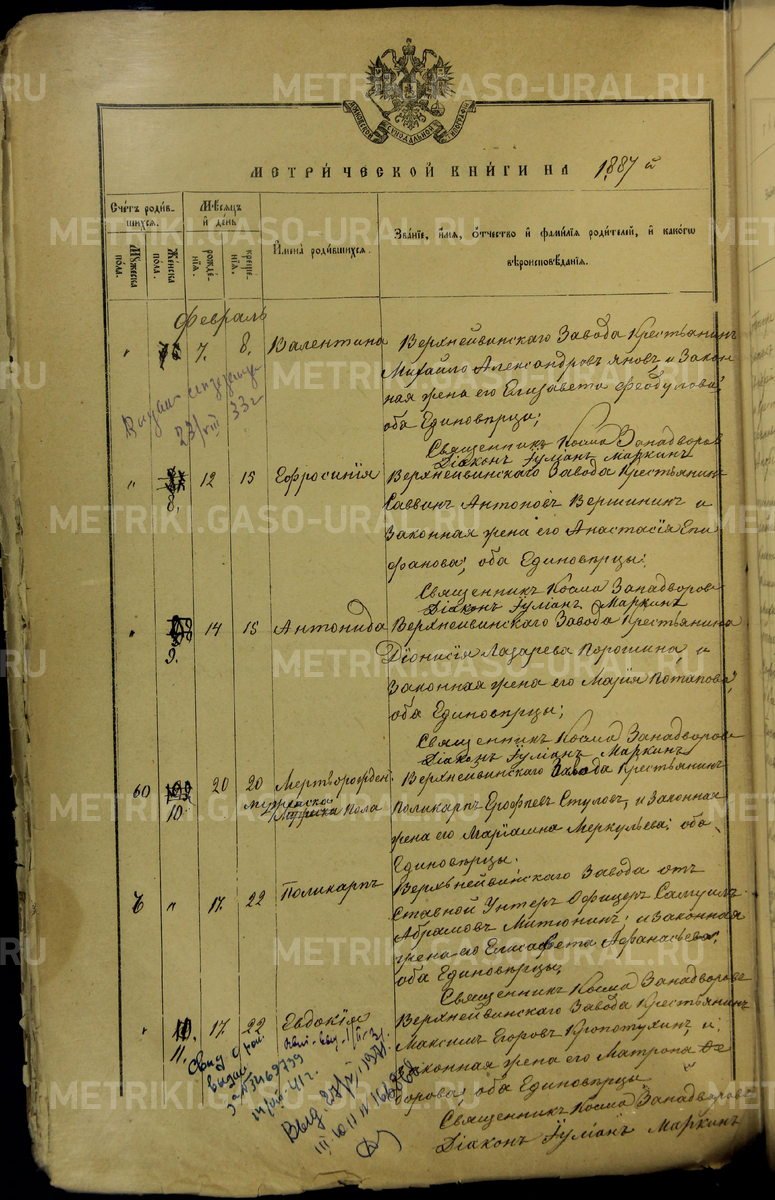 METRIKI.GASO-URAL.RU
МОСКОВСКОЙ СѴНОДАЛЬНОЙ ТИПОГРАФІИ
МЕТРИ́ЧЕСКОЙ КНИ́ГИ НА 1887 й
Счетъ роди́вшихся.
Му́жеска по́ла.
Же́нска по́ла.
Мѣсяцъ и день
рожде́нїѧ.
креще́нїѧ.
Имена̀ роди́вшихся.
Зва́нїе, и́мя, о́тчество и фами́лїя роди́телей, и како́гѡ
вѣроисповѣ́данїѧ.
Февраль
" 7. 8. Валентина Верхнейвинскаго Завода Крестьянинъ
Михайло Александровъ Яновъ, и Закон
ная жена его Елизавета Ѳеодулова,
оба Единовѣрцы;
23/VIII 33 г
Священникъ Косма Западворовъ
Діаконъ Іуліанъ Маркинъ
" 8. 12 15 Ефросинія Верхнейвинскаго Завода Крестьянинъ
Саввинъ Антоновъ Вершининъ и
Законная жена его Анастасія Епи
фанова; оба Единовѣрцы:
Священникъ Косма Западворовъ
Діаконъ Іуліанъ Маркинъ
" 9. 14 15 Антонида Верхнейвинскаго Завода Крестьянина
Діонисія Лазарева Порошина, и
Законная жена его Марія Потапова,
оба Единовѣрцы;
Священникъ Косма Западворовъ
Діаконъ Іуліанъ Маркинъ
10. 20 20 Мертворожден. Верхнейвинскаго Завода Крестьянинъ
пола Поликарпъ Ерофѣевъ Стуловъ, и Законная
жена его Маріамна Меркульева; оба
Единовѣрцы.
6 " 17. 22 Поликарпъ Верхьнейвинскаго Завода от
ставной Унтеръ Офицеръ Самуилъ
Абрамовъ Митюнинъ, и Законная
жена его Елисавета Афанасьева;
оба Единовѣрцы;
Священникъ Косма Западворовъ
" 11. 17. 22 Евдокія Верхнейвинскаго Завода Крестьянинъ
Максимъ Егоровъ Кропотухинъ, и
Законная жена его Матрона Ѳе
дорова; оба Единовѣрцы
Священникъ Косма Западворовъ
Діаконъ Іуліанъ Маркинъ